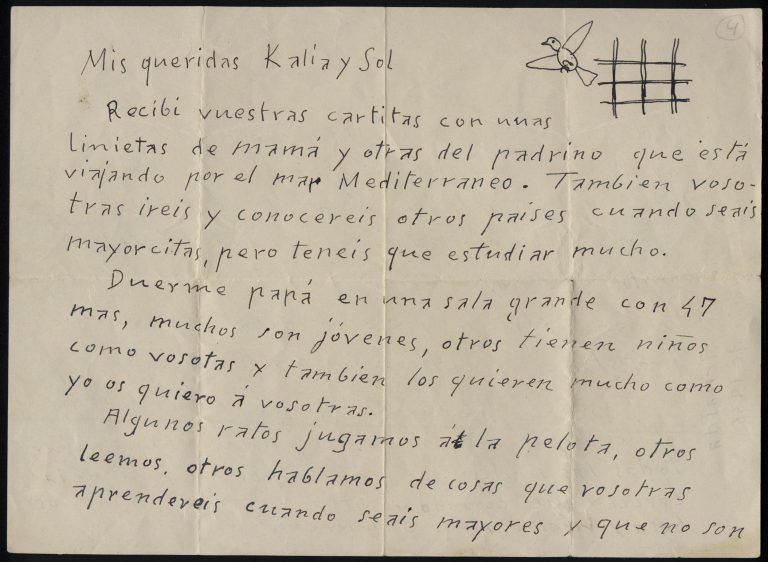 4
Mis queridas Kalia y Sol
Recibi vuestras cartitas con unas
linietas de mamá y otras del padrino que está
viajando por el mar Mediterraneo. Tambien voso-
tras ireis y conocereis otros países cuando seais
mayorcitas, pero teneis que estudiar mucho.
Duerme papá en una sala grande con 47
mas, muchos son jóvenes, otros tienen niños
como vosotas y tambien los quieren mucho como
yo os quiero á vosotras.
Algunos ratos jugamos á la pelota, otros
leemos, otros hablamos de cosas que vosotras
aprendereis cuando seais mayores y que no son